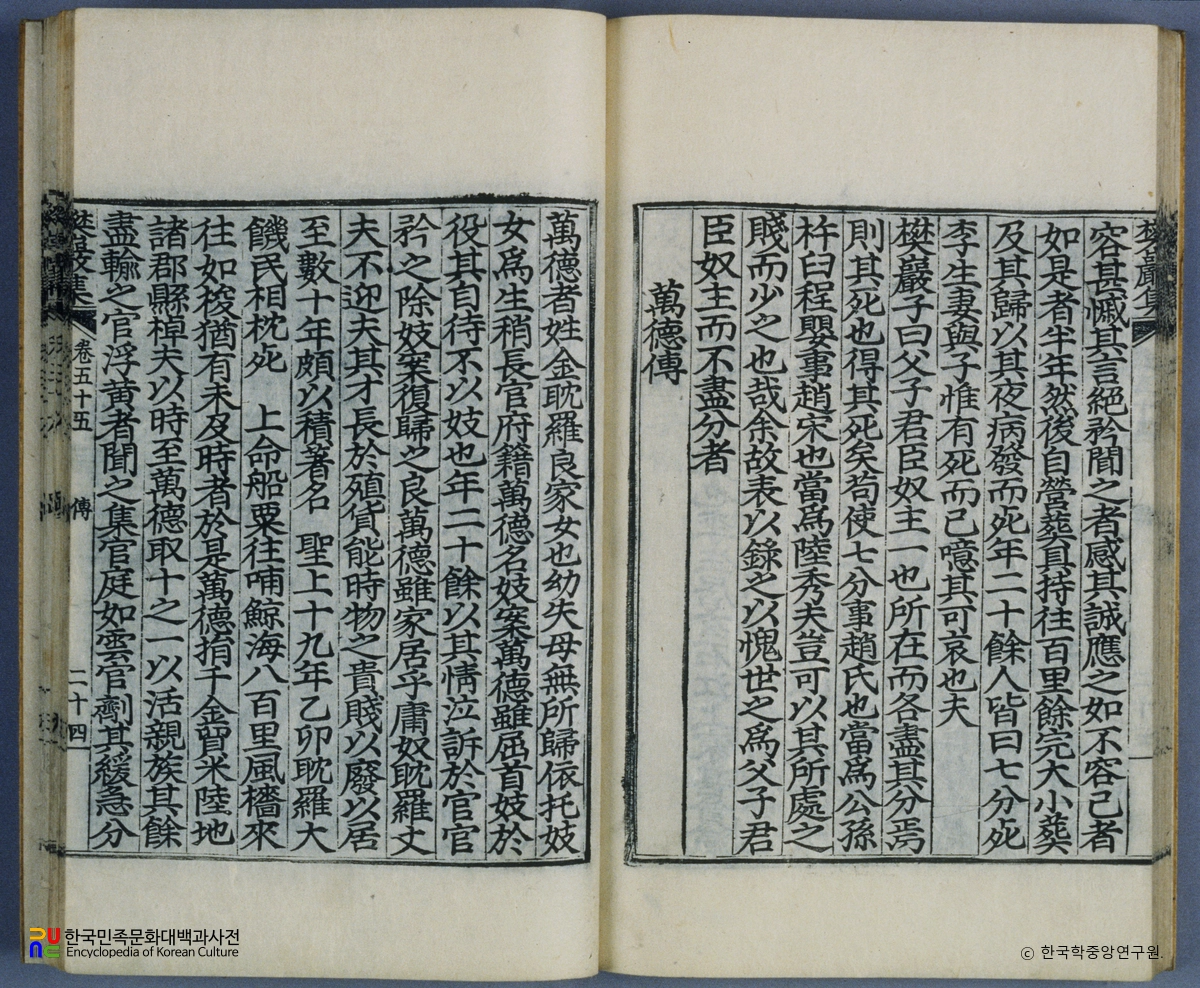 樊巖集
容甚慽其言絕矜聞之者感其誠應之如不容己者
如是者半年然後自營葬具持往百里餘完大小葬
及其歸以其夜病發而死年二十餘人皆曰七分死
李生妻與子惟有死而已噫其可哀也夫
樊巖子曰父子君臣奴主一也所在而各盡其分焉
則其死也得其死矣苟使七分事趙氏也當爲公孫
杵臼程嬰事趙宋也當爲陸秀夫豈可以其所處之
賤而少之也哉余故表以錄之以愧世之爲父子君
臣奴主而不盡分者
萬德傳
萬德者姓金耽羅良家女也幼失母無所歸依托妓
女爲生稍長官府籍萬德名妓案萬德雖屈首妓於
役其自待不以妓也年二十餘以其情泣訴於官官
矜之除妓案復歸之良萬德雖家居乎庸奴耽羅丈
夫不迎夫其才長於殖貨能時物之貴賤以廢以居
至數十年頗以積著名 聖上十九年乙卯耽羅大
饑民相枕死 上命船粟往哺鯨海八百里風檣來
往如梭猶有未及時者於是萬德捐千金貿米陸地
諸郡縣棹夫以時至萬德取十之一以活親族其餘
盡輸之官浮黄者聞之集官庭如雲官劑其緩急分
樊巖集 卷五十五 傳 二十四
한국민족문화대백과사전
Encyclopedia of Korean Culture
ⓒ 한국학중앙연구원